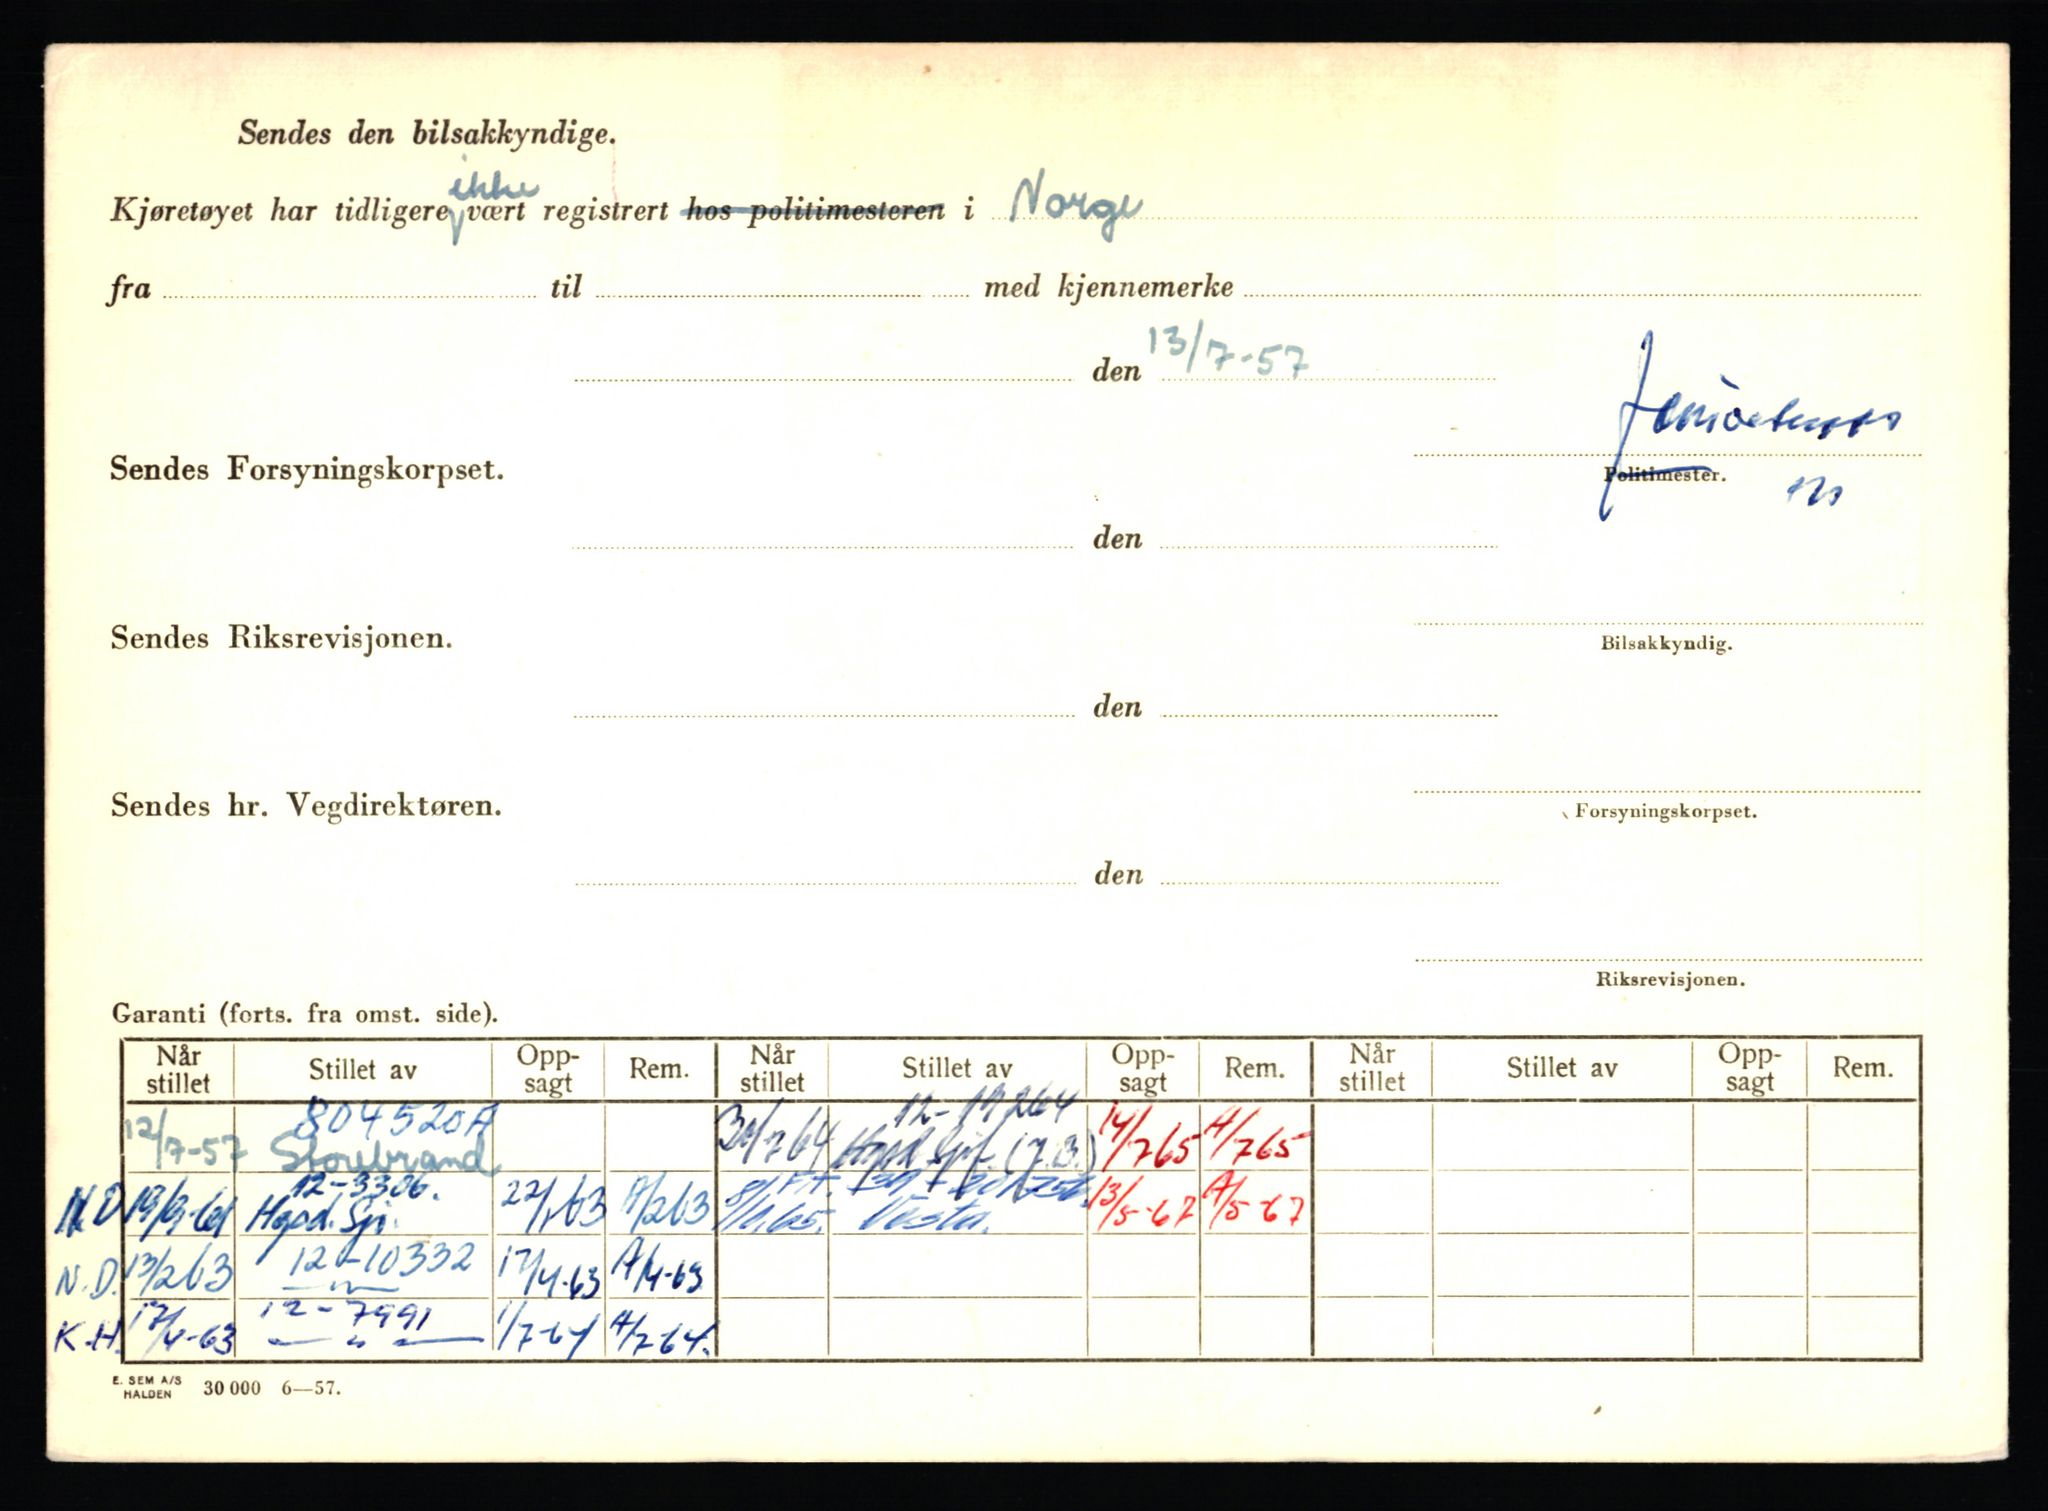 Sendes den bilsakkyndige.
ikke
Kjøretøyet har tidligere vært registrert hos politimesteren i Norge
fra til med kjennemerke
den 13/7-57
Sendes Forsyningskorpset.
Politimester.
den
Sendes Riksrevisjonen.
Bilsakkyndig.
den
Sendes hr. Vegdirektøren.
Forsyningskorpset.
den
Riksrevisjonen.
Garanti (forts. fra omst. side).
Når stillet Stillet av Opp-sagt Rem. Når stillet Stillet av Opp-sagt Rem. Når stillet Stillet av Opp-sagt Rem.
804520A
12/7-57 Storebrand 14/7 65 A/7 65
12-3306.
N.D Hgsd. Sjr. 22/1 63 A/2 63 Vesta. 13/5-67 A/5-67
N.D. 13/2 63 12-10332 17/4-63 A/4-63
K.H. 17/4-63 12-7991 1/7-64 A/7-64.
E. SEM A/S
HALDEN 30 000 6—57.